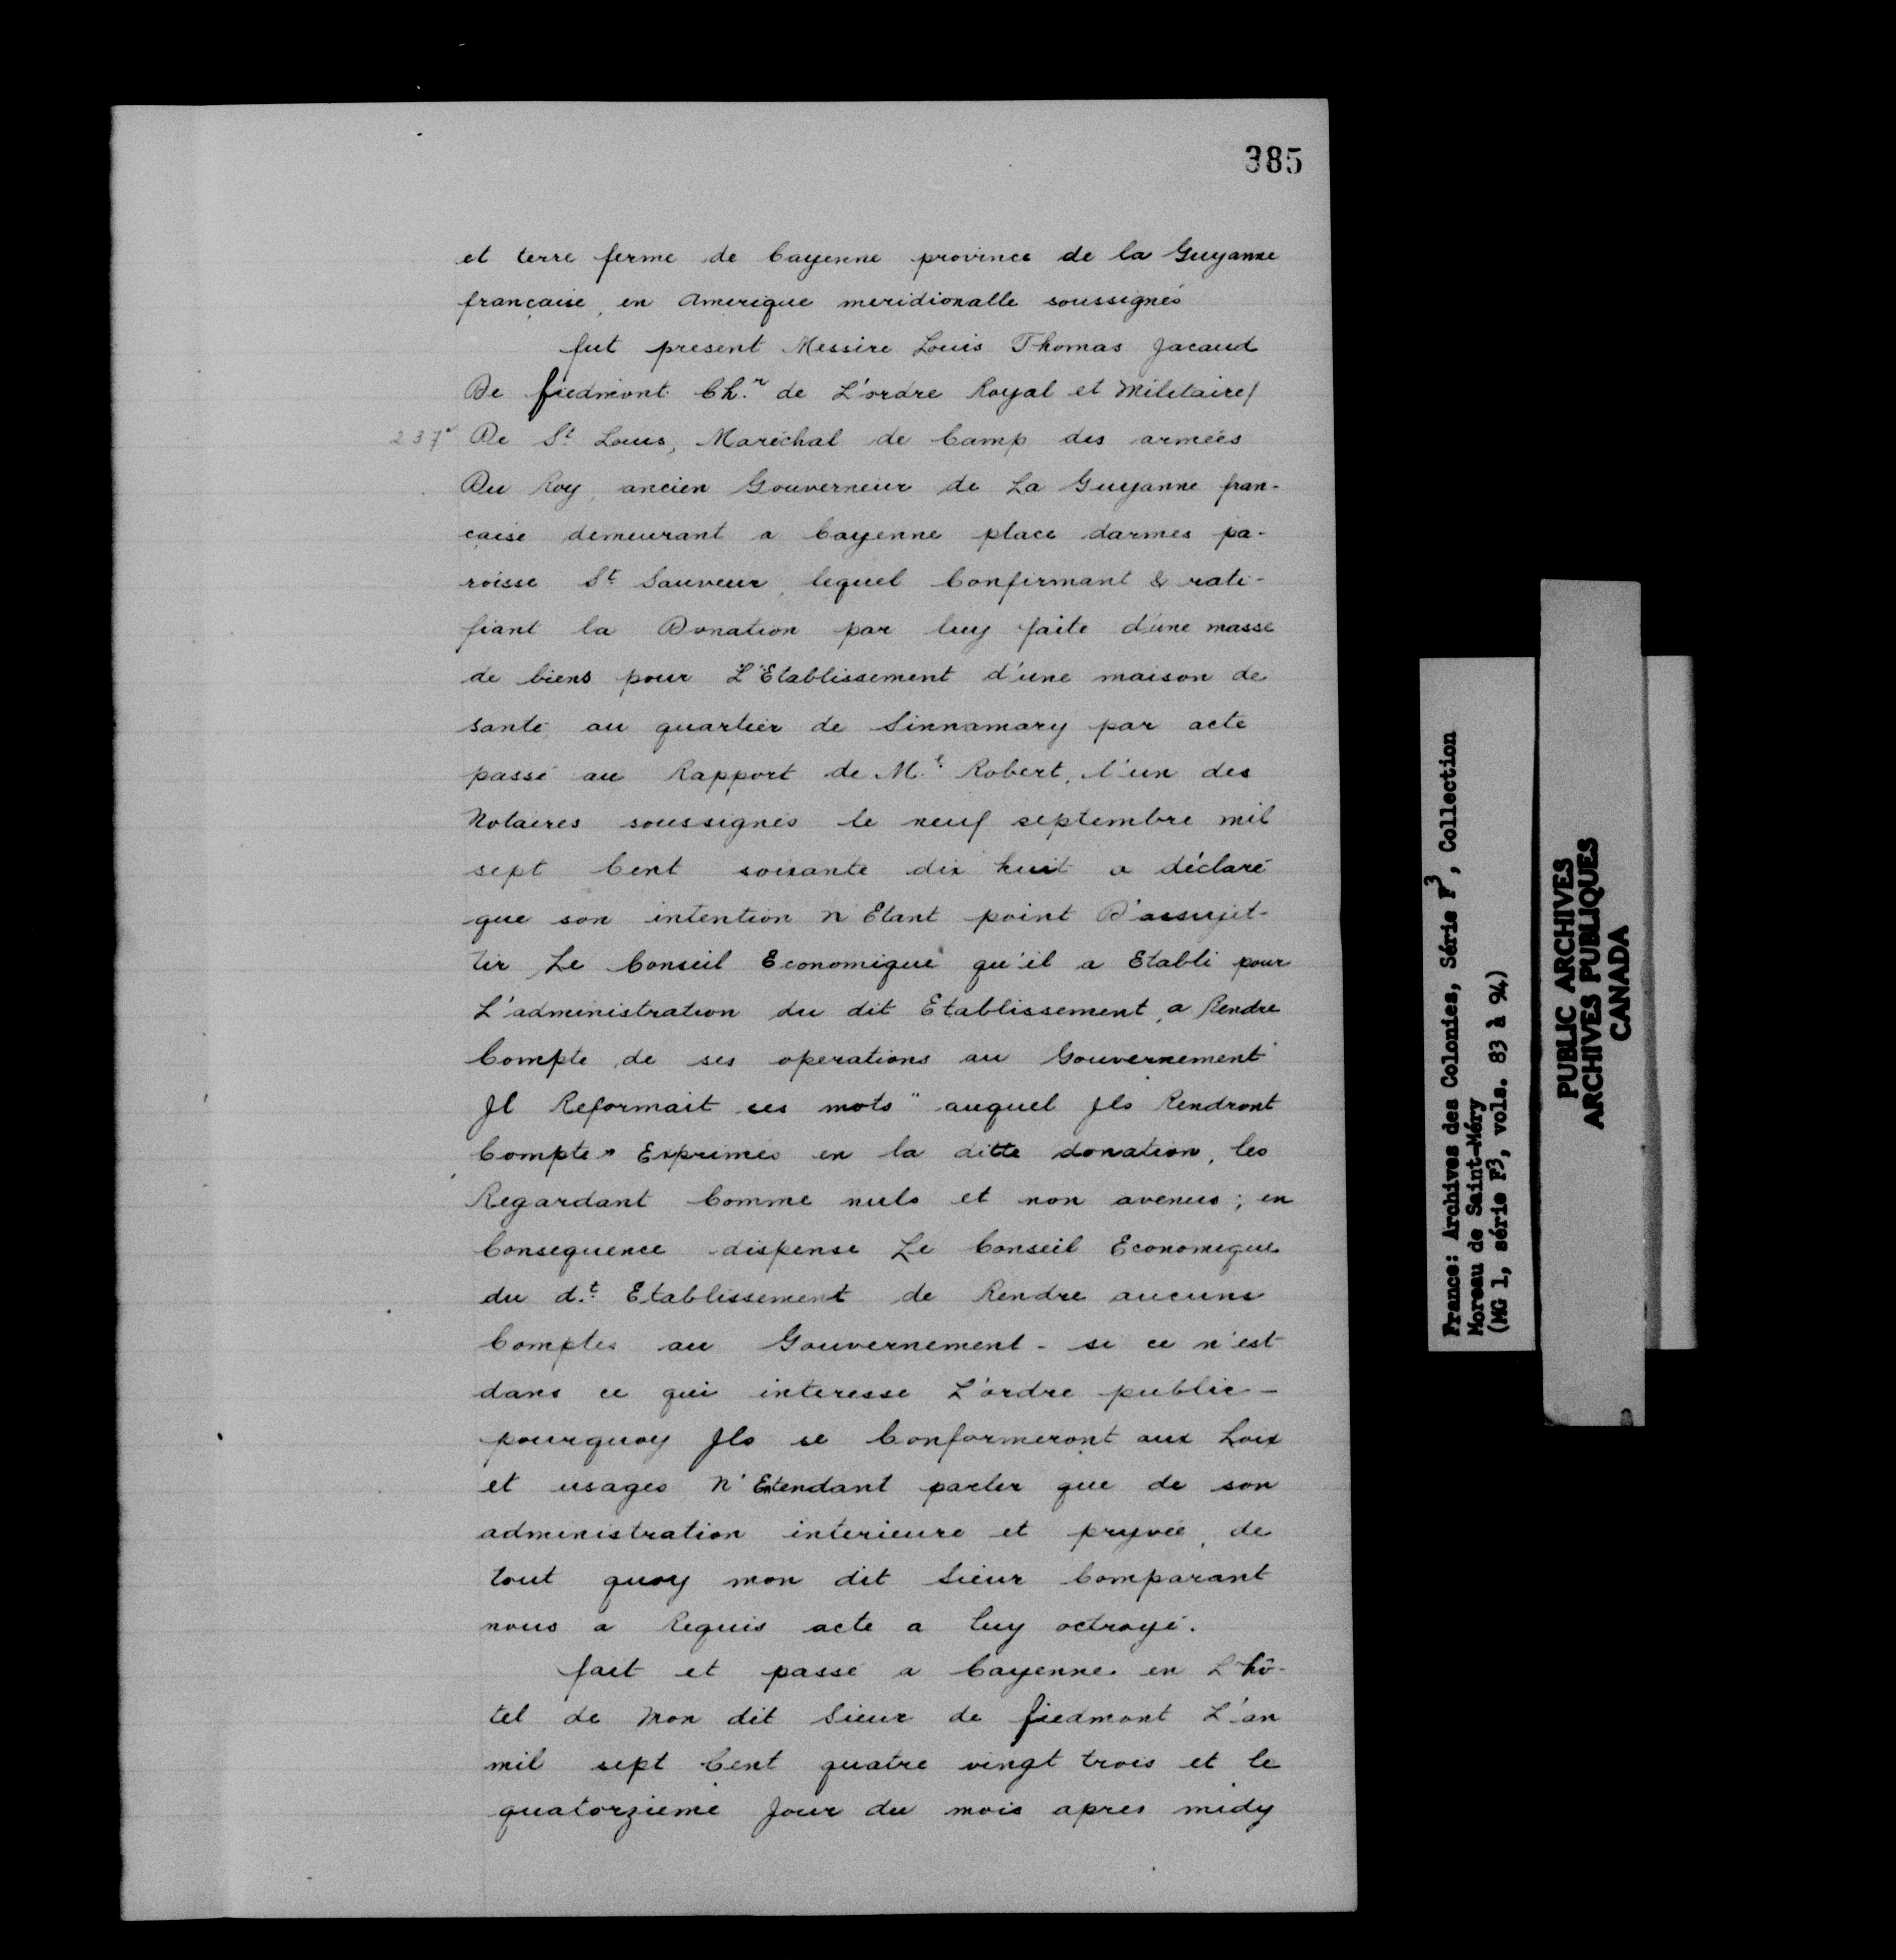 385
et terre ferme de Cayenne province de la Guyanne
française, en Amerique meridionalle soussignés
fut present Messire Louis Thomas Jacaud
De fiedmont Ch.r de L'ordre Royal et Militaire/
237 De St Louis, Maréchal de Camp des armées
Du Roy, ancien Gouverneur de La Guyanne fran-
caise demeurant a Cayenne place darmes pa-
roisse St Sauveur, lequel Confirmant & rati-
fiant la Donation par luy faite d'une masse
de biens pour L'Etablissement d'une maison de
santé au quartier de Sinnamary par acte
passé au Rapport de M.e Robert, l'un des
Notaires soussignés le neuf septembre mil
sept Cent soixante dix huit a déclaré
que son intention n'Etant point D'assujet-
tir Le Conseil Economique qu'il a Etabli pour
L'administration du dit Etablissement, a Rendre
Compte de ses operations au Gouvernement
Il Reformait ces mots "auquel Ils Rendront
Compte" Exprimés en la ditte donation, les
Regardant Comme nuls et non avenus; en
Consequence dispense Le Conseil Economique
du d.t Etablissement de Rendre aucuns
Comptes au Gouvernement - si ce n'est
dans ce qui interesse L'ordre public -
pourquoy Ils se Conformeront aux Loix
et usages N'Entendant parler que de son
administration interieure et pryvée, de
tout quoy mon dit Sieur Comparant
nous a Requis acte a luy octroyé.
fait et passé a Cayenne en L'hô-
tel de Mon dit Sieur de fiedmont L'an
mil sept Cent quatre vingt trois et le
quatorzieme Jour du mois apres midy
France: Archives des Colonies, Série F3, Collection
Moreau de Saint-Méry
(MG 1, série F3, vols. 83 à 94)
PUBLIC ARCHIVES
ARCHIVES PUBLIQUES
CANADA